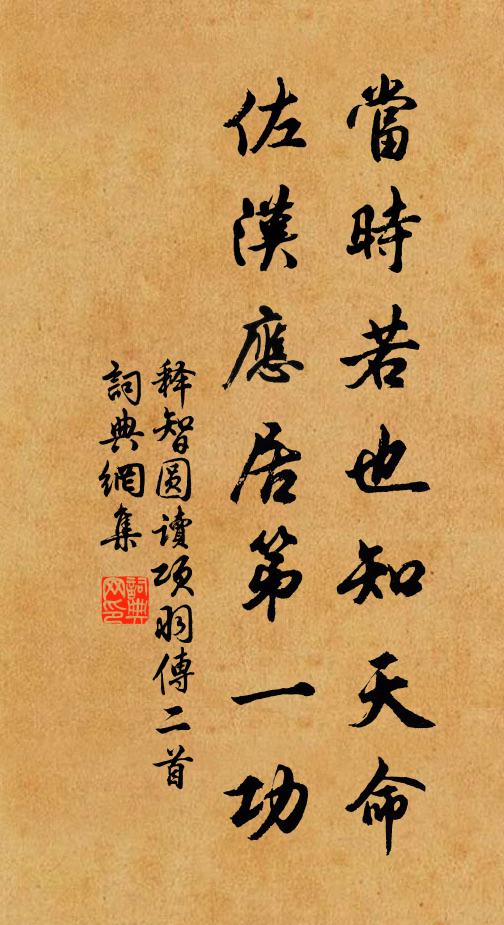 當時若也知天命
佐漢應居第一功
释智圆讀項羽傳二首
詞典網集
詞典网印